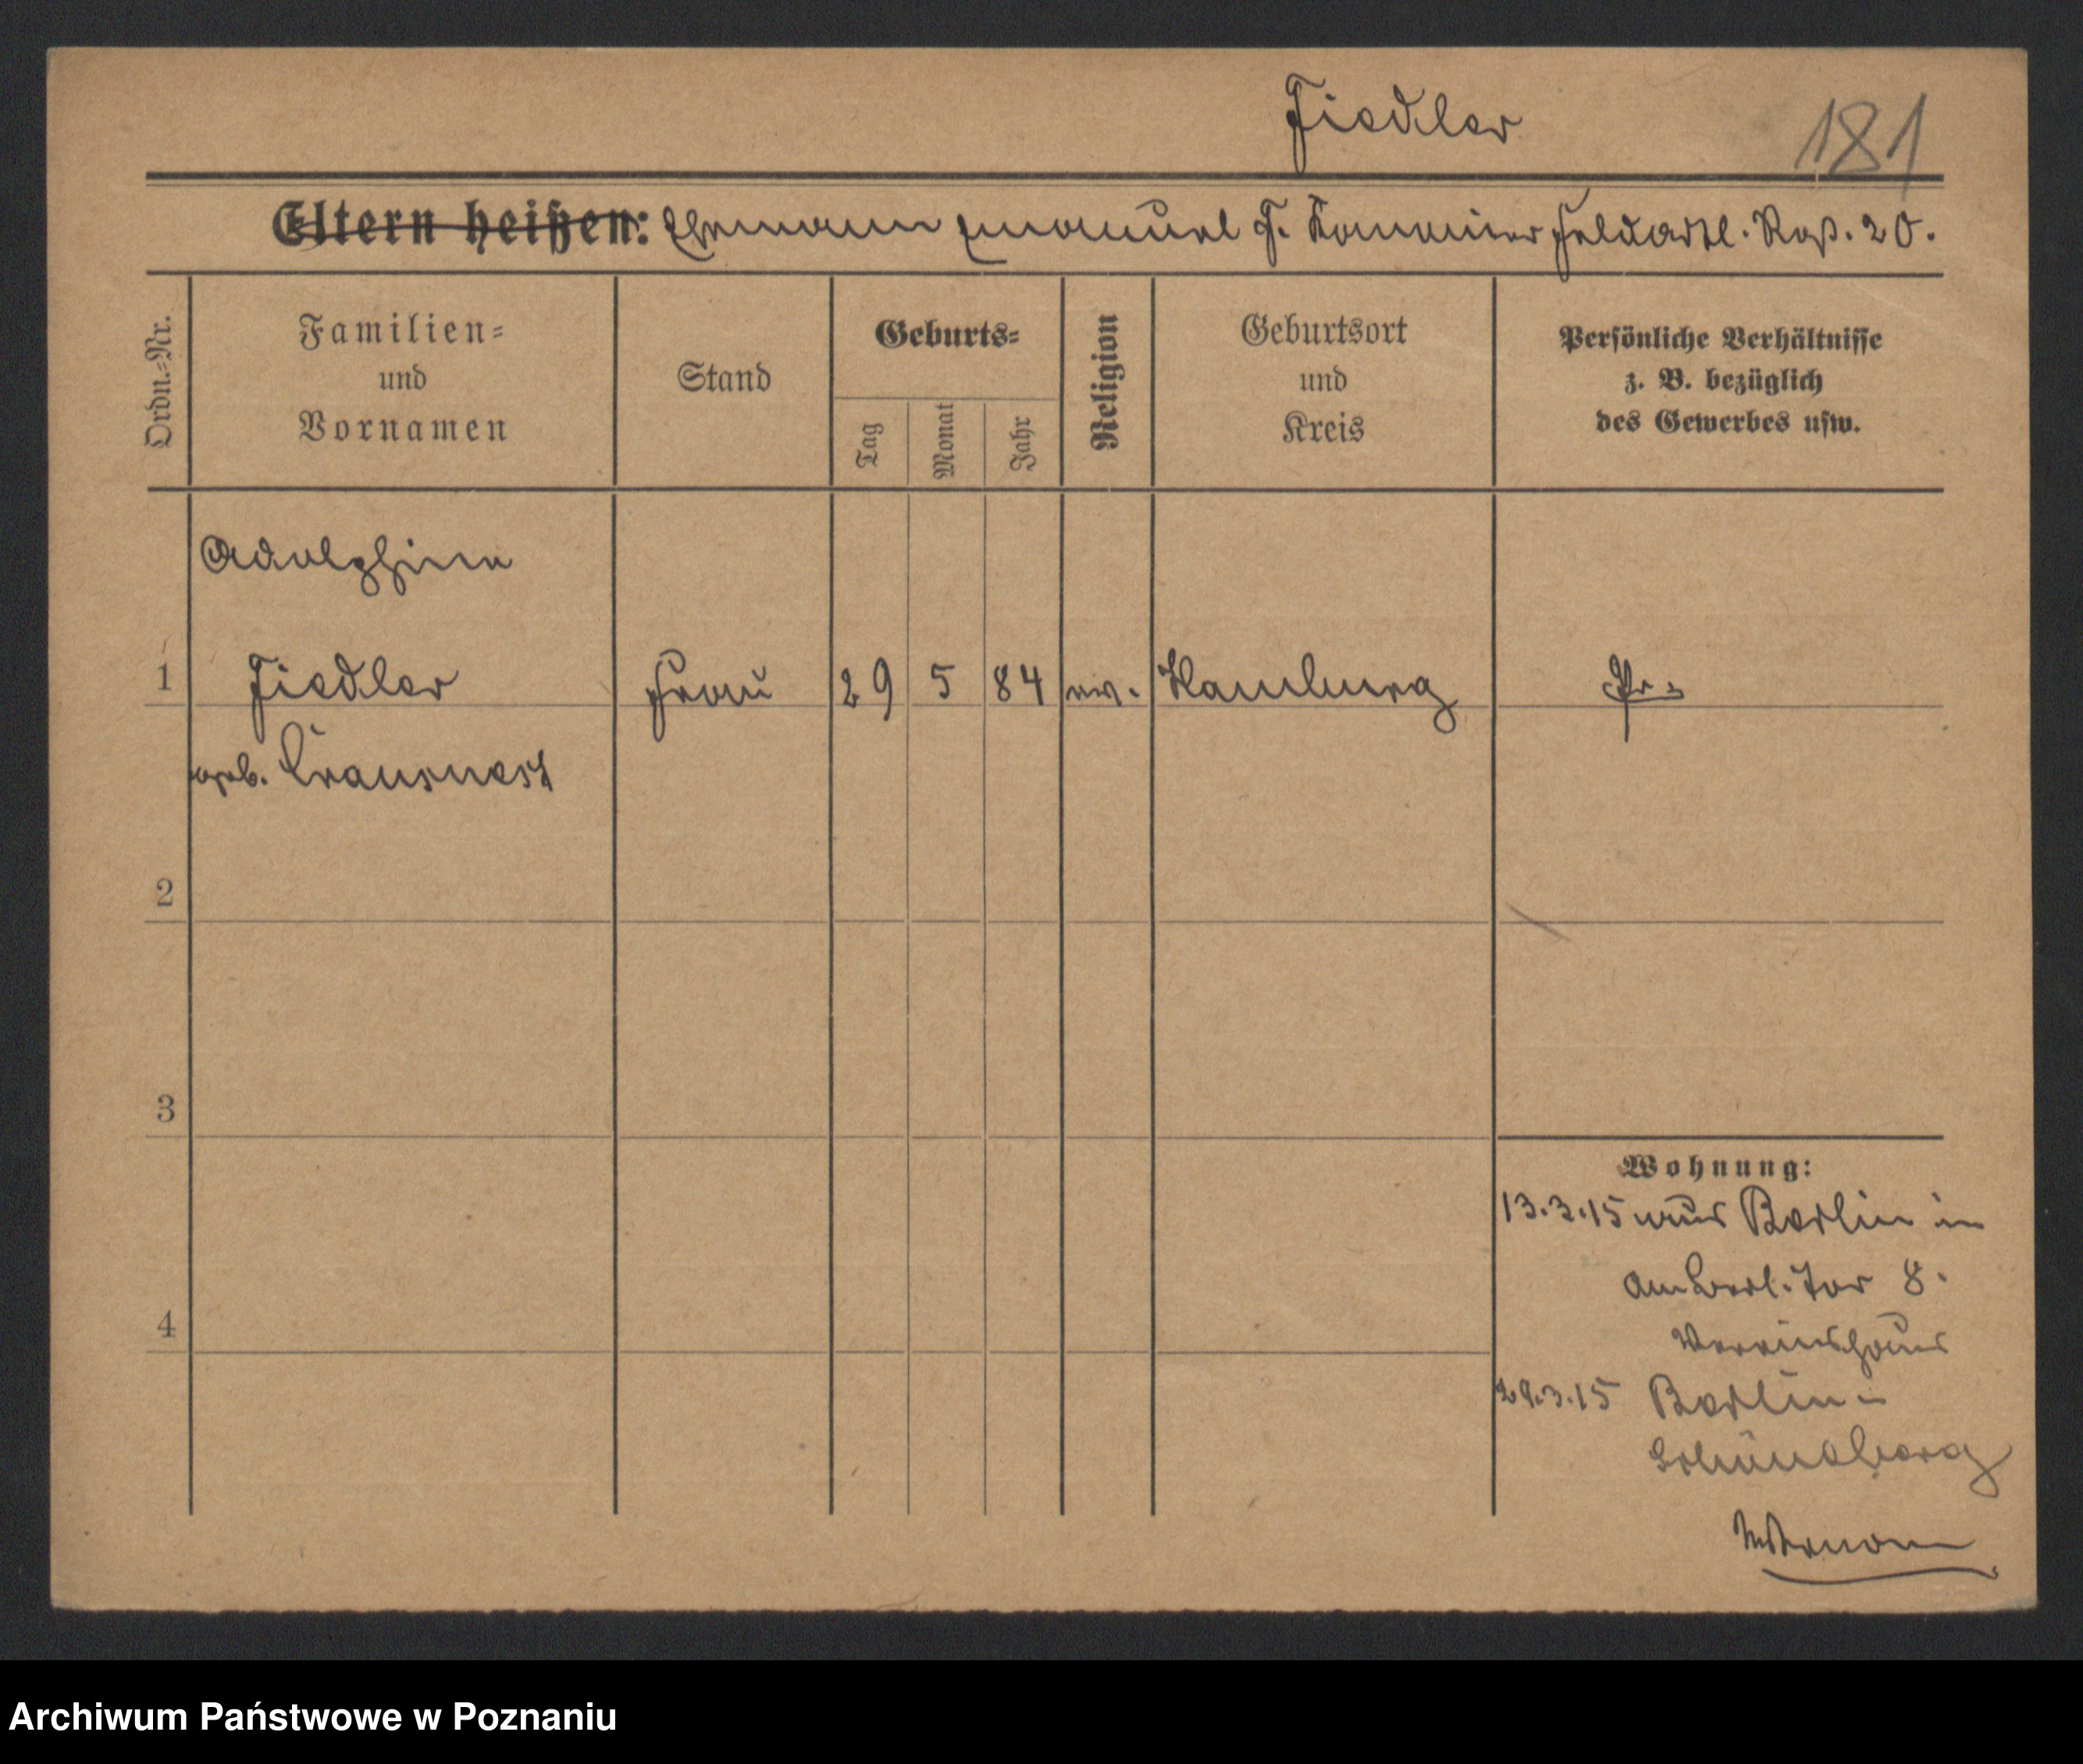 Fiedler
181
Eltern heißen: Ehemann Emanuel F. Kanonier Feldartl. Rgt. 20.
Ordn.-Nr.
Familien-
und
Vornamen
Stand
Geburts-
Tag
Monat
Jahr
Religion
Geburtsort
und
Kreis
Persönliche Verhältnisse
z. B. bezüglich
des Gewerbes usw.
Adolphine
1 Fiedler Frau 29 5 84 ev. Hamburg Pr.
geb. Crausnest
2
3
4
Wohnung:
13.3.15 aus Berlin in
Am Berl. Tor 8.
Vereinshaus
29.3.15 Berlin-
Schöneberg
Archiwum Państwowe w Poznaniu